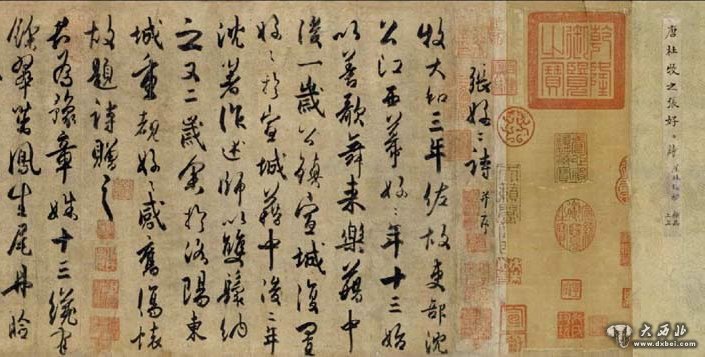 唐杜牧之張好〻詩
乾隆御覽之寶
張好〻詩 并序
牧大和三年佐故吏部沈
公江西幕好〻年十三始
以善歌舞来樂籍中
後一歲公鎮宣城復置
好〻於宣城籍中後二年
沈著作述師以雙鬟納
之又二歲余於洛陽東
城重覩好〻感舊傷懷
故題詩贈之
君為豫章姝十三纔有
餘翠茁鳳生尾丹臉
大西北
www.dxbei.com